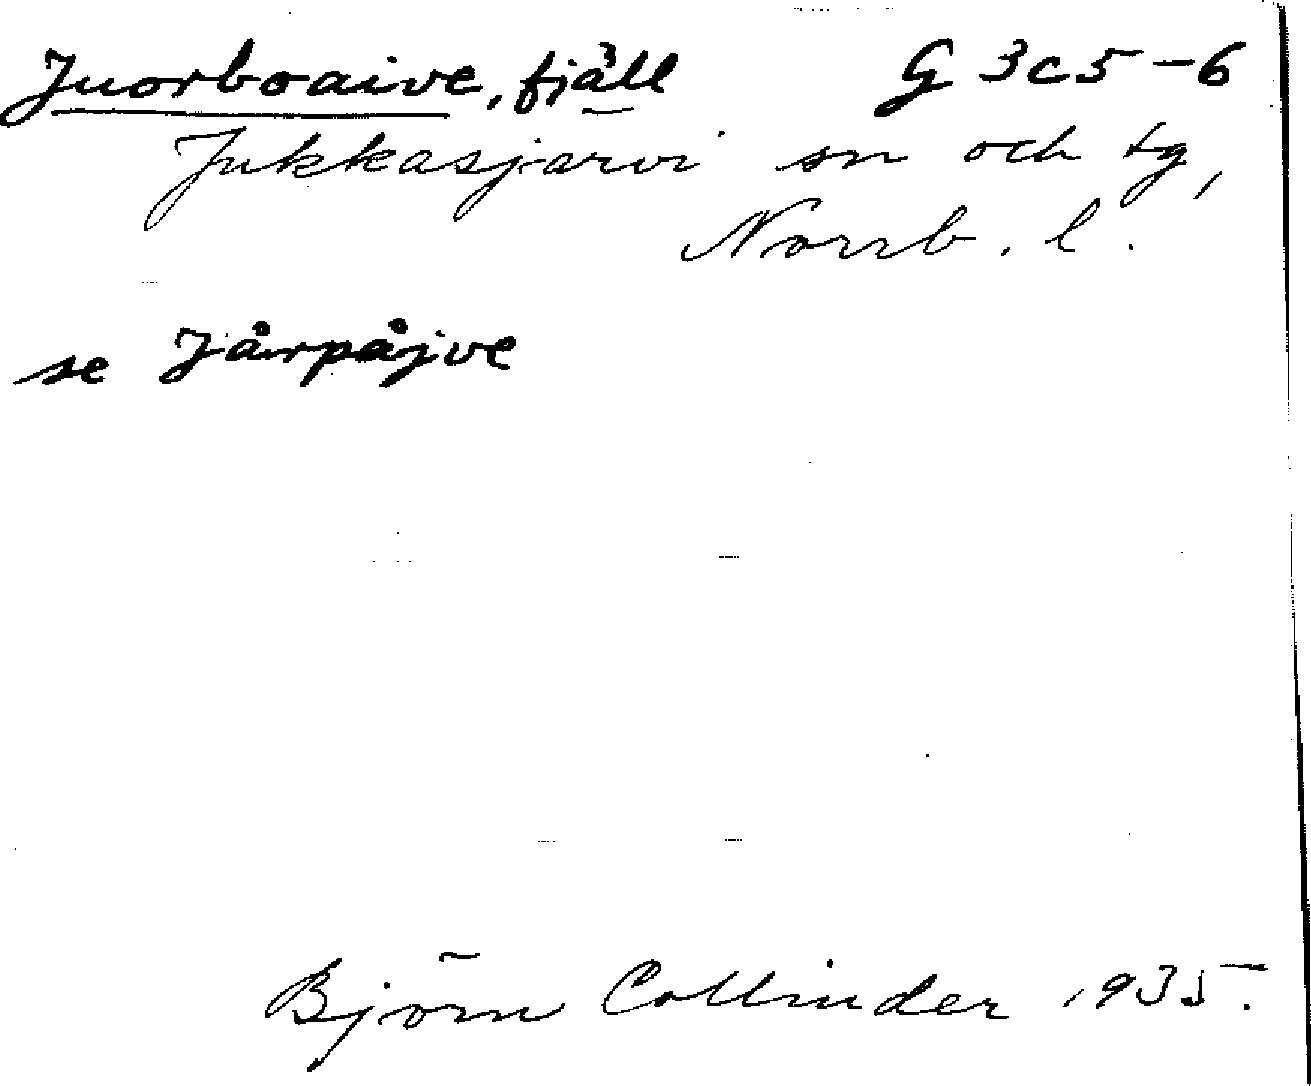 Juorboaive, fjäll G 3c5-6
Jukkasjärvi sn och tg,
Norrb. l.
se Jårpåjve
Björn Collinder 1935.